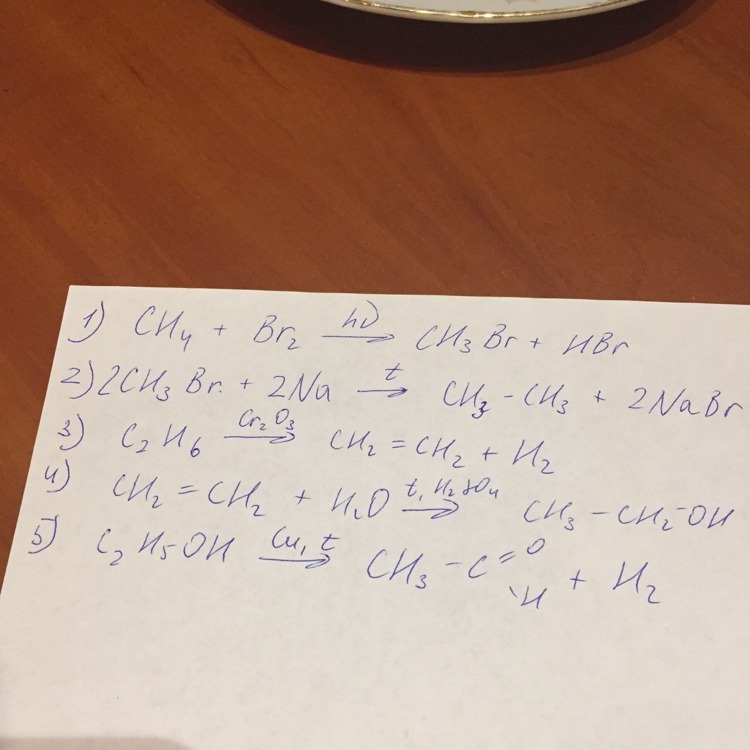 1) CH₄ + Br₂ —hν→ CH₃Br + HBr
2) 2CH₃Br + 2Na —t→ CH₃-CH₃ + 2NaBr
3) C₂H₆ —Cr₂O₃→ CH₂=CH₂ + H₂
4) CH₂=CH₂ + H₂O —t, H₂SO₄→ CH₃-CH₂-OH
5) C₂H₅OH —Cu, t→ CH₃-C=O\H + H₂